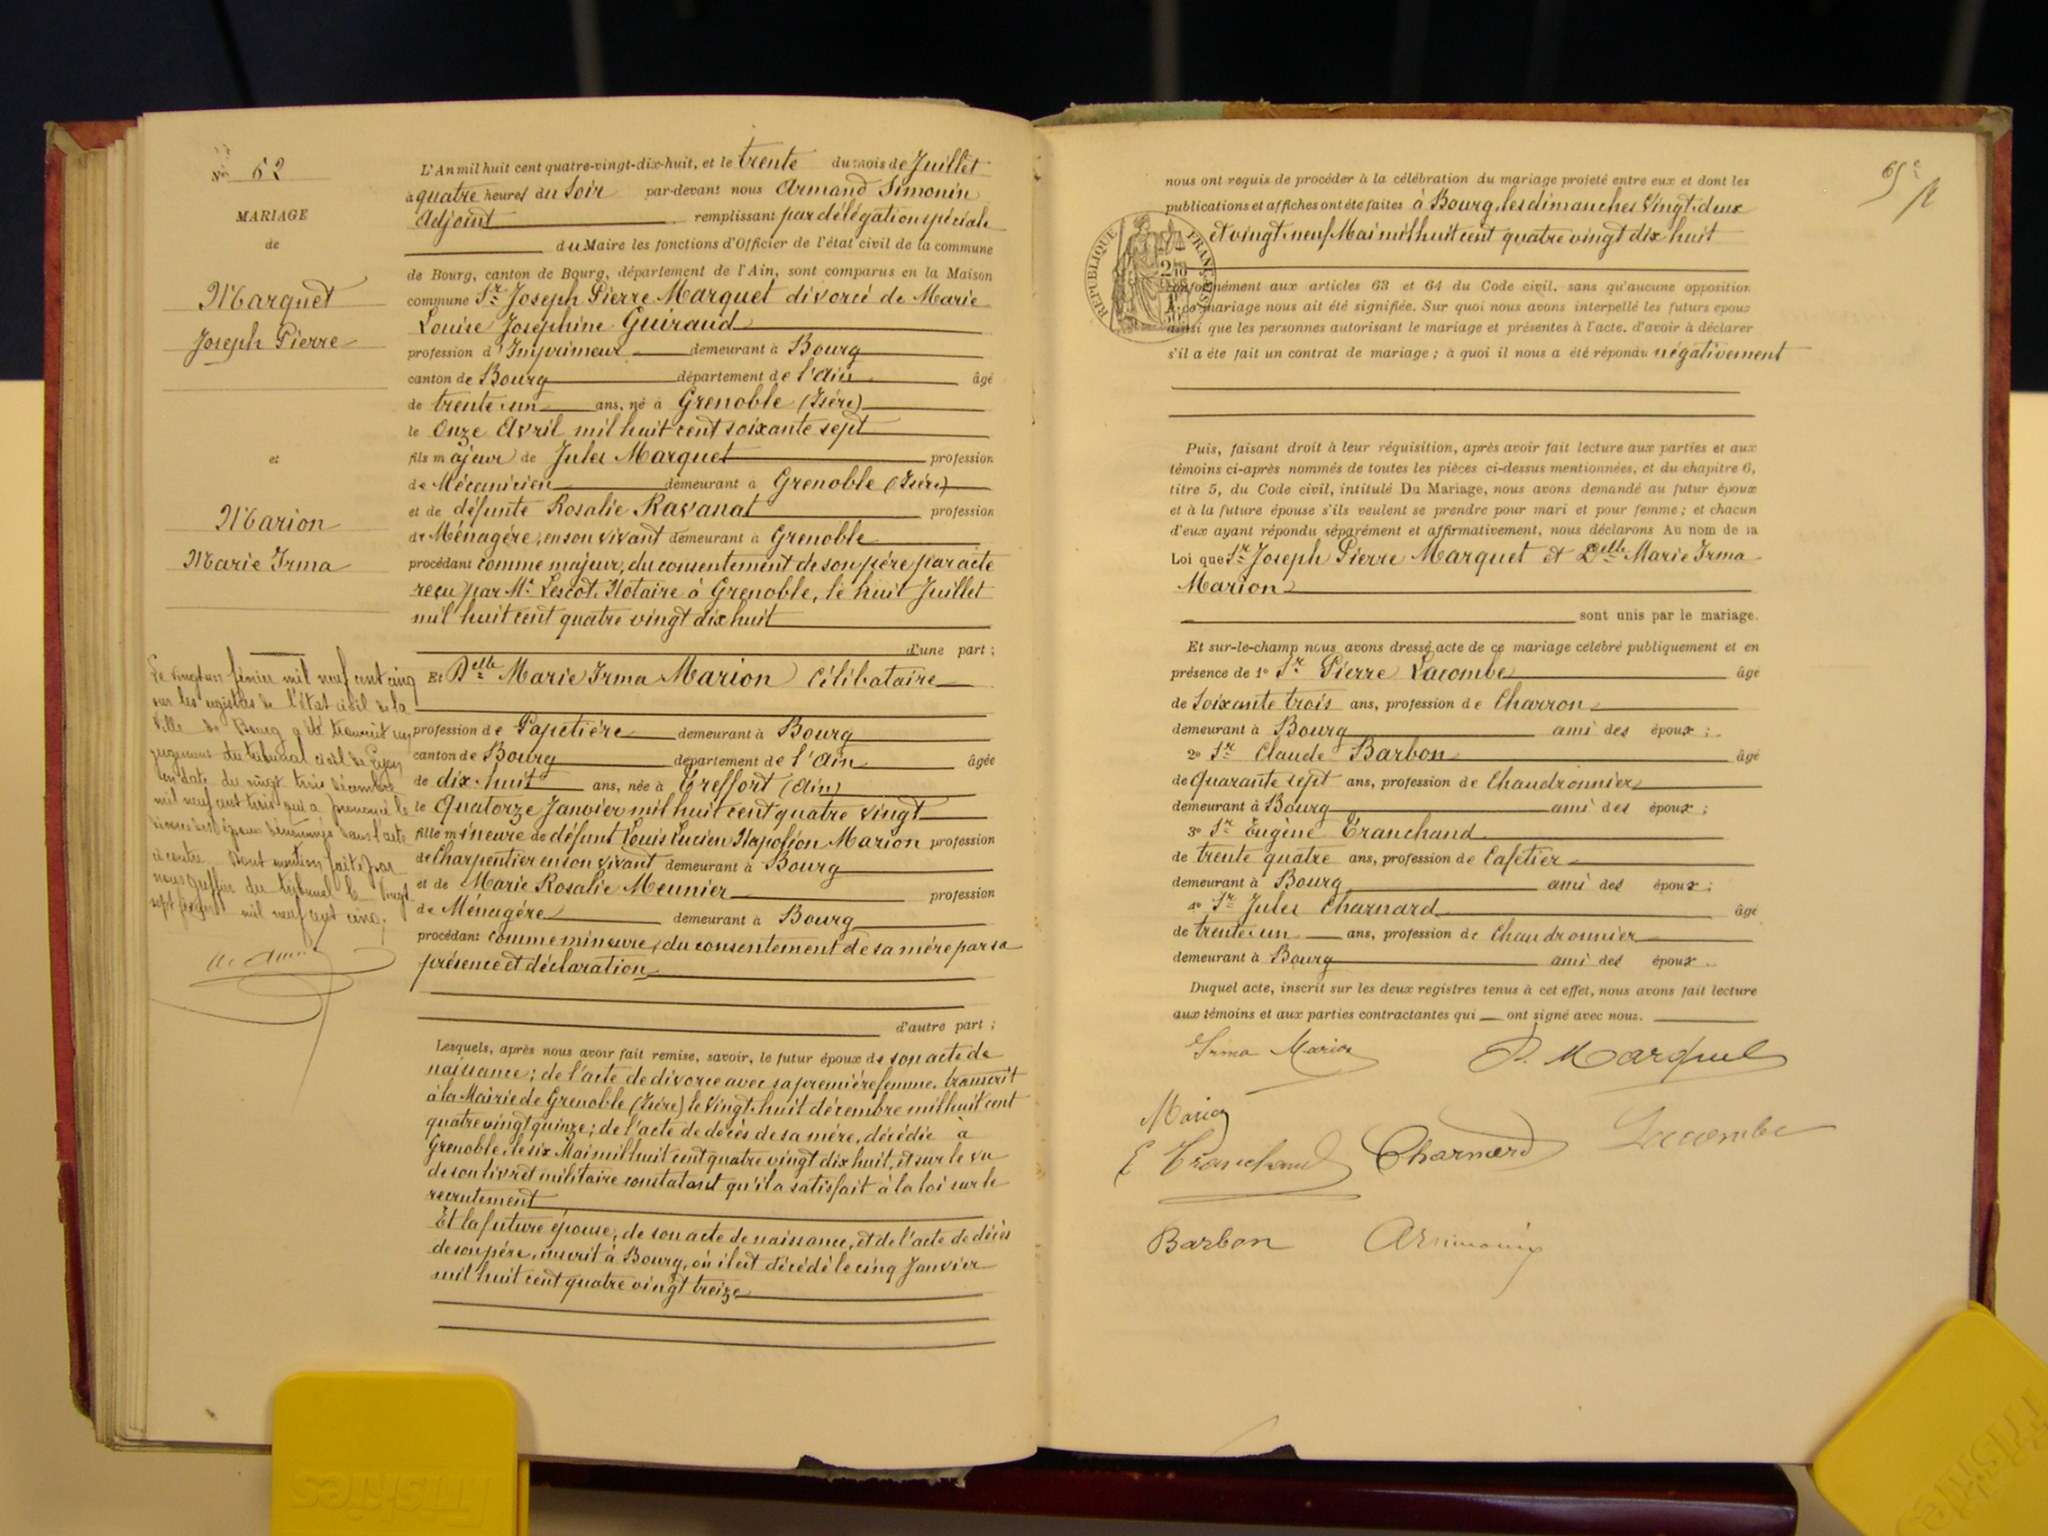 No 62
MARIAGE
de
Marquet
Joseph Pierre
et
Marion
Marie Irma
Le vingt un février mil neuf cent cinq
sur les registres de l'état civil de la
ville de Bourg a été transcrit un
jugement du tribunal civil de Lyon
en date du vingt trois décembre
mil neuf cent trois qui a prononcé le
divorce des époux dénommés dans l'acte
ci contre. Dont mention faite par
nous greffier du tribunal le vingt
sept février mil neuf cent cinq.
L'An mil huit cent quatre-vingt-dix-huit, et le trente du mois de Juillet
à quatre heures du Soir par-devant nous Armand Simonin
Adjoint remplissant par délégation spéciale
du Maire les fonctions d'Officier de l'état civil de la commune
de Bourg, canton de Bourg, département de l'Ain, sont comparus en la Maison
commune Sr Joseph Pierre Marquet divorcé de Marie
Louise Joséphine Guiraud
profession d'Imprimeur demeurant à Bourg
canton de Bourg département de l'Ain âgé
de trente-un ans, né à Grenoble (Isère)
le Onze Avril mil huit cent soixante sept
fils majeur de Jules Marquet profession
de Mécanicien demeurant à Grenoble (Isère)
et de défunte Rosalie Ravanat profession
de Ménagère, en son vivant demeurant à Grenoble
procédant comme majeur, du consentement de son père par acte
reçu par Me Lescot, Notaire à Grenoble, le huit Juillet
mil huit cent quatre vingt dix huit
d'une part ;
Et Delle Marie Irma Marion Célibataire
profession de Papetière demeurant à Bourg
canton de Bourg département de l'Ain âgée
de dix-huit ans, née à Treffort (Ain)
le Quatorze Janvier mil huit cent quatre vingt
fille mineure de défunt Louis Lucien Napoléon Marion profession
de Charpentier en son vivant demeurant à Bourg
et de Marie Rosalie Meunier profession
de Ménagère demeurant à Bourg
procédant comme mineure, du consentement de sa mère par sa
présence et déclaration
d'autre part ;
Lesquels, après nous avoir fait remise, savoir, le futur époux de son acte de
naissance ; de l'acte de divorce avec sa première femme, transcrit
à la Mairie de Grenoble (Isère) le Vingt-huit décembre mil huit cent
quatre vingt quinze ; de l'acte de décès de sa mère, décédée à
Grenoble, le six Mai mil huit cent quatre vingt dix huit, et sur le vu
de son livret militaire constatant qu'il a satisfait à la loi sur le
recrutement
Et la future épouse, de son acte de naissance, et de l'acte de décès
de son père, inscrit à Bourg, où il est décédé le cinq Janvier
mil huit cent quatre vingt treize
65e
nous ont requis de procéder à la célébration du mariage projeté entre eux et dont les
publications et affiches ont été faites à Bourg, les dimanches Vingt-deux
et vingt-neuf Mai mil huit cent quatre vingt dix huit
REPUBLIQUE FRANÇAISE
conformément aux articles 63 et 64 du Code civil, sans qu'aucune opposition
à ce mariage nous ait été signifiée. Sur quoi nous avons interpellé les futurs époux
ainsi que les personnes autorisant le mariage et présentes à l'acte, d'avoir à déclarer
s'il a été fait un contrat de mariage ; à quoi il nous a été répondu négativement
Puis, faisant droit à leur réquisition, après avoir fait lecture aux parties et aux
témoins ci-après nommés de toutes les pièces ci-dessus mentionnées, et du chapitre 6,
titre 5, du Code civil, intitulé Du Mariage, nous avons demandé au futur époux
et à la future épouse s'ils veulent se prendre pour mari et pour femme ; et chacun
d'eux ayant répondu séparément et affirmativement, nous déclarons Au nom de la
Loi que Sr Joseph Pierre Marquet et Delle Marie Irma
Marion
sont unis par le mariage.
Et sur-le-champ nous avons dressé acte de ce mariage célébré publiquement et en
présence de 1° Sr Pierre Lacombe âgé
de Soixante trois ans, profession de Charron
demeurant à Bourg ami des époux ;
2° Sr Claude Barbon âgé
de Quarante sept ans, profession de Chaudronnier
demeurant à Bourg ami des époux ;
3° Sr Eugène Tranchand
de trente quatre ans, profession de Cafetier
demeurant à Bourg ami des époux ;
4° Sr Jules Charnard âgé
de trente-un ans, profession de Chaudronnier
demeurant à Bourg ami des époux.
Duquel acte, inscrit sur les deux registres tenus à cet effet, nous avons fait lecture
aux témoins et aux parties contractantes qui ont signé avec nous.
Irma Marion P. Marquet
Marion
E Tranchand Charnard Lacombe
Barbon A Simonin